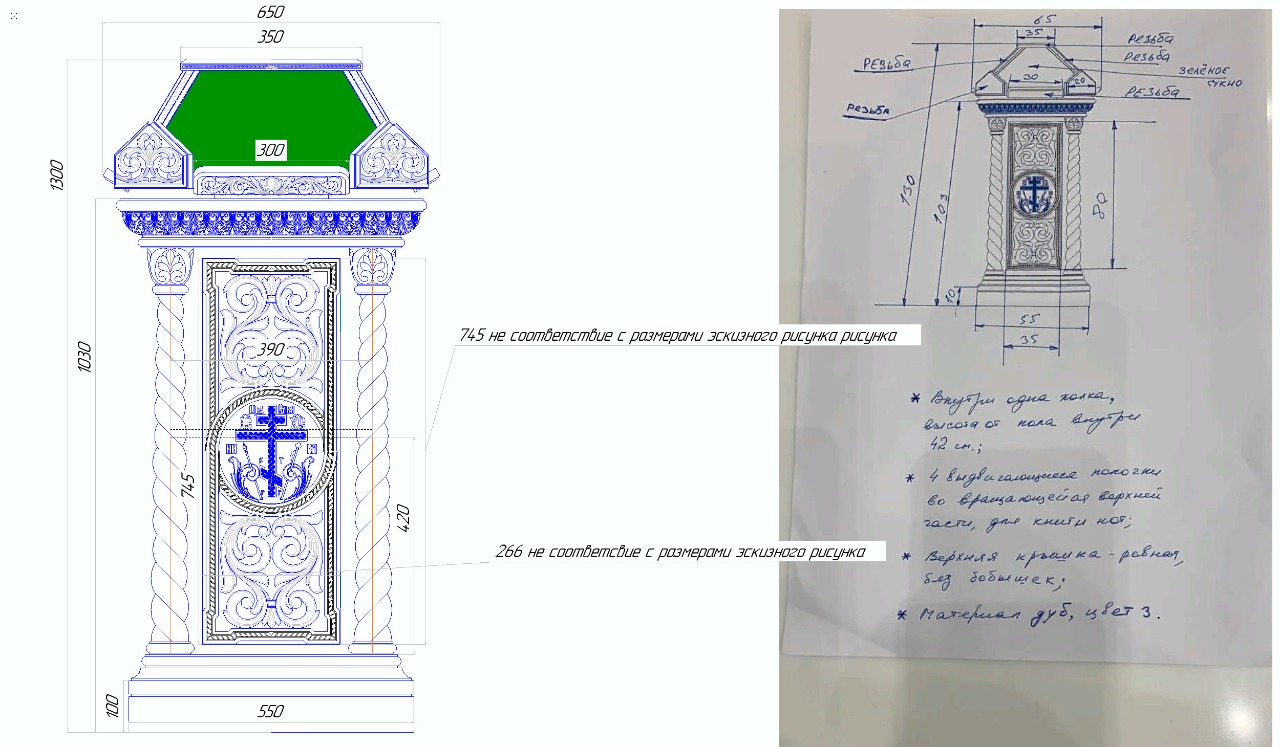 650
350
300
1300
1030
745 не соответствие с размерами эскизного рисунка рисунка
390
745
420
266 не соответсвие с размерами эскизного рисунка
100
550
65
35
резьба
резьба
РЕЗЬБА
зелёное
сукно
30
20
РЕЗЬБА
РЕЗЬБА
130
103
80
10
55
35
* Внутри одна полка,
высота от пола внутри
42 см.;
* 4 выдвигающиеся полочки
во вращающейся верхней
части, для книги нот;
* Верхняя крышка - ровная,
без бобышек;
* Материал дуб, цвет 3.